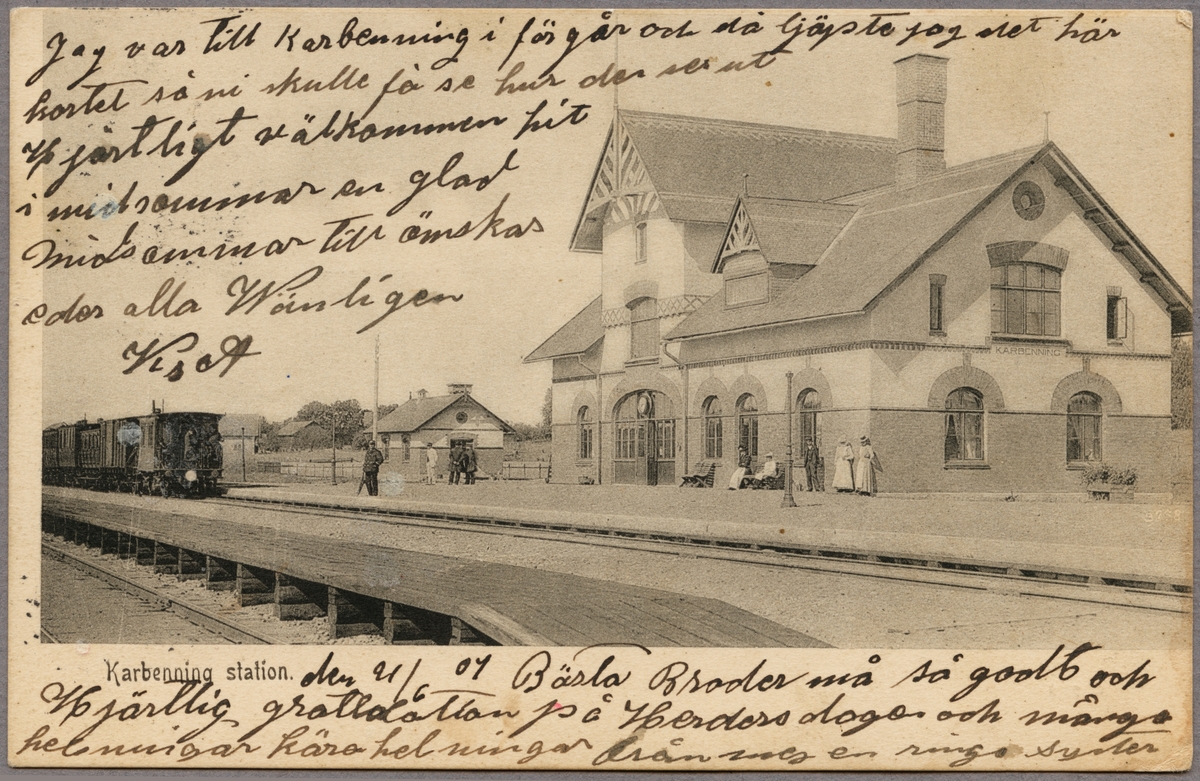 Jag var till Karbenning i förgår och då tjöpte jag det här
kortet så ni skulle få se hur der ser ut
Hjärtligt välkommen hit
i midsommar en glad
Midsommar till ömskas
eder alla Wänligen
K s A
KARBENNING
Karbenning station. den 21/6 07 Bästa Broder må så godt och
Hjärtlig grattulattion på Herders dagar och många
helsningar kära helsningar från mej en ringa syster